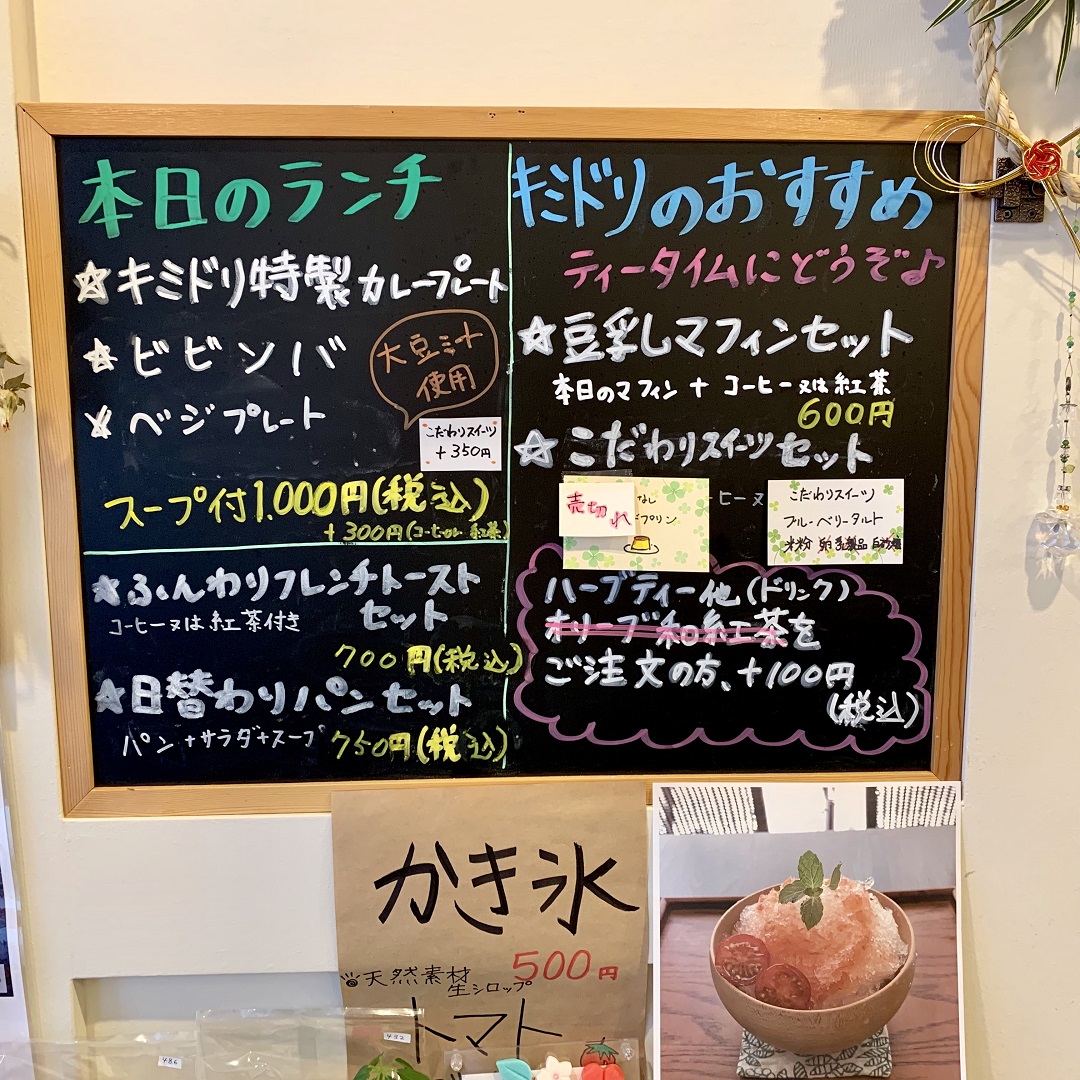 本日のランチ
☆キミドリ特製カレープレート
☆ビビンバ
大豆ミート
使用
☆ベジプレート
こだわりスイーツ
+350円
スープ付1.000円(税込)
+300円(コーヒーor紅茶)
★ふんわりフレンチトースト
セット
コーヒー又は紅茶付き
700円(税込)
★日替わりパンセット
パン+サラダ+スープ
750円(税込)
キミドリのおすすめ
ティータイムにどうぞ♪
☆豆乳しマフィンセット
本日のマフィン+コーヒー又は紅茶
600円
☆こだわりスイーツセット
売切れ
なし
プリン
ヒー又
こだわりスイーツ
ブルーベリータルト
米粉 卵乳製品
ハーブティー他(ドリンク)
オリーブ和紅茶を
ご注文の方、+100円
(税込)
かき氷
500円
天然素材
生シロップ
トマト
482
486